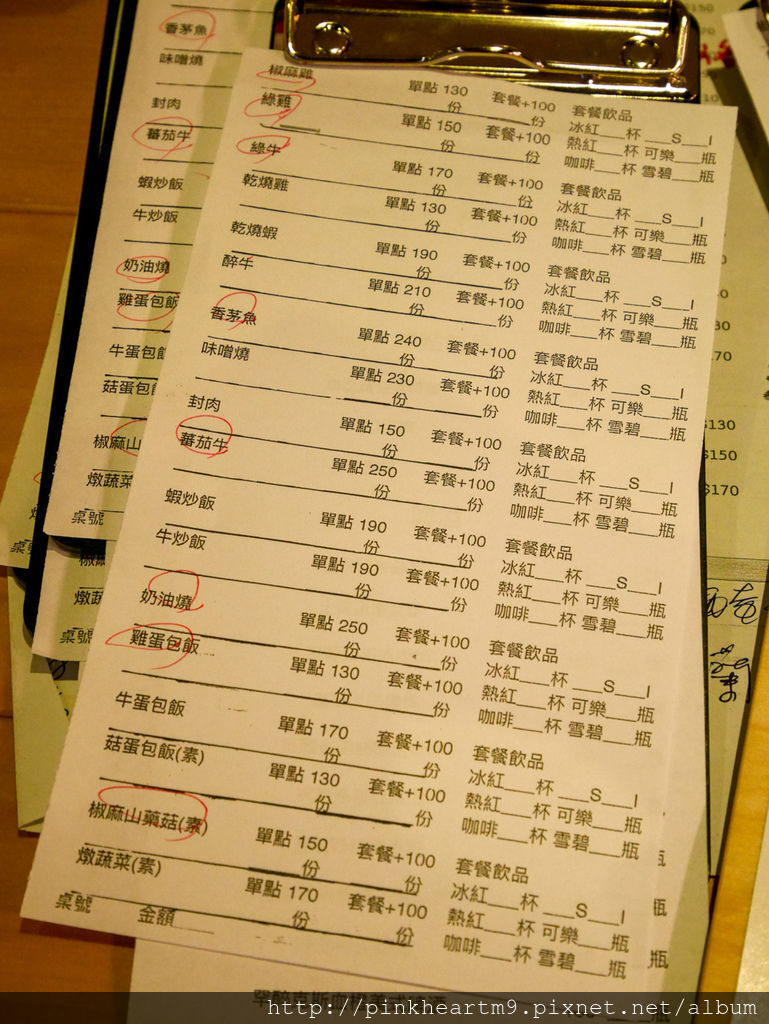 椒麻雞 單點 130 份 套餐+100 份 套餐飲品
綠雞 單點 150 份 套餐+100 份 冰紅___杯 ___S___I
熱紅___杯 可樂___瓶
綠牛 單點 170 份 套餐+100 份 咖啡___杯 雪碧___瓶
乾燒雞 單點 130 份 套餐+100 份 套餐飲品
冰紅___杯 ___S___I
熱紅___杯 可樂___瓶
乾燒蝦 單點 190 份 套餐+100 份 咖啡___杯 雪碧___瓶
醉牛 單點 210 份 套餐+100 份 套餐飲品
冰紅___杯 ___S___I
熱紅___杯 可樂___瓶
香茅魚 單點 240 份 套餐+100 份 咖啡___杯 雪碧___瓶
味噌燒 單點 230 份 套餐+100 份 套餐飲品
冰紅___杯 ___S___I
熱紅___杯 可樂___瓶
封肉 單點 150 份 套餐+100 份 咖啡___杯 雪碧___瓶
蕃茄牛 單點 250 份 套餐+100 份 套餐飲品
冰紅___杯 ___S___I
熱紅___杯 可樂___瓶
蝦炒飯 單點 190 份 套餐+100 份 咖啡___杯 雪碧___瓶
牛炒飯 單點 190 份 套餐+100 份 套餐飲品
冰紅___杯 ___S___I
熱紅___杯 可樂___瓶
奶油燒 單點 250 份 套餐+100 份 咖啡___杯 雪碧___瓶
雞蛋包飯 單點 130 份 套餐+100 份 套餐飲品
冰紅___杯 ___S___I
熱紅___杯 可樂___瓶
牛蛋包飯 單點 170 份 套餐+100 份 咖啡___杯 雪碧___瓶
菇蛋包飯(素) 單點 130 份 套餐+100 份 套餐飲品
冰紅___杯 ___S___I
熱紅___杯 可樂___瓶
椒麻山藥菇(素) 單點 150 份 套餐+100 份 咖啡___杯 雪碧___瓶
燉蔬菜(素) 單點 170 份 套餐+100 份 套餐飲品
冰紅___杯 ___S___I
熱紅___杯 可樂___瓶
桌號 金額____ 咖啡___杯 雪碧___瓶
香茅魚
味噌燒
封肉
蕃茄牛
蝦炒飯
牛炒飯
奶油燒
雞蛋包飯
牛蛋包飯
菇蛋包
椒麻山
燉蔬菜
桌號
椒麻
燉蔬
桌號
$130
$150
$170
http://pinkheartm9.pixnet.net/album